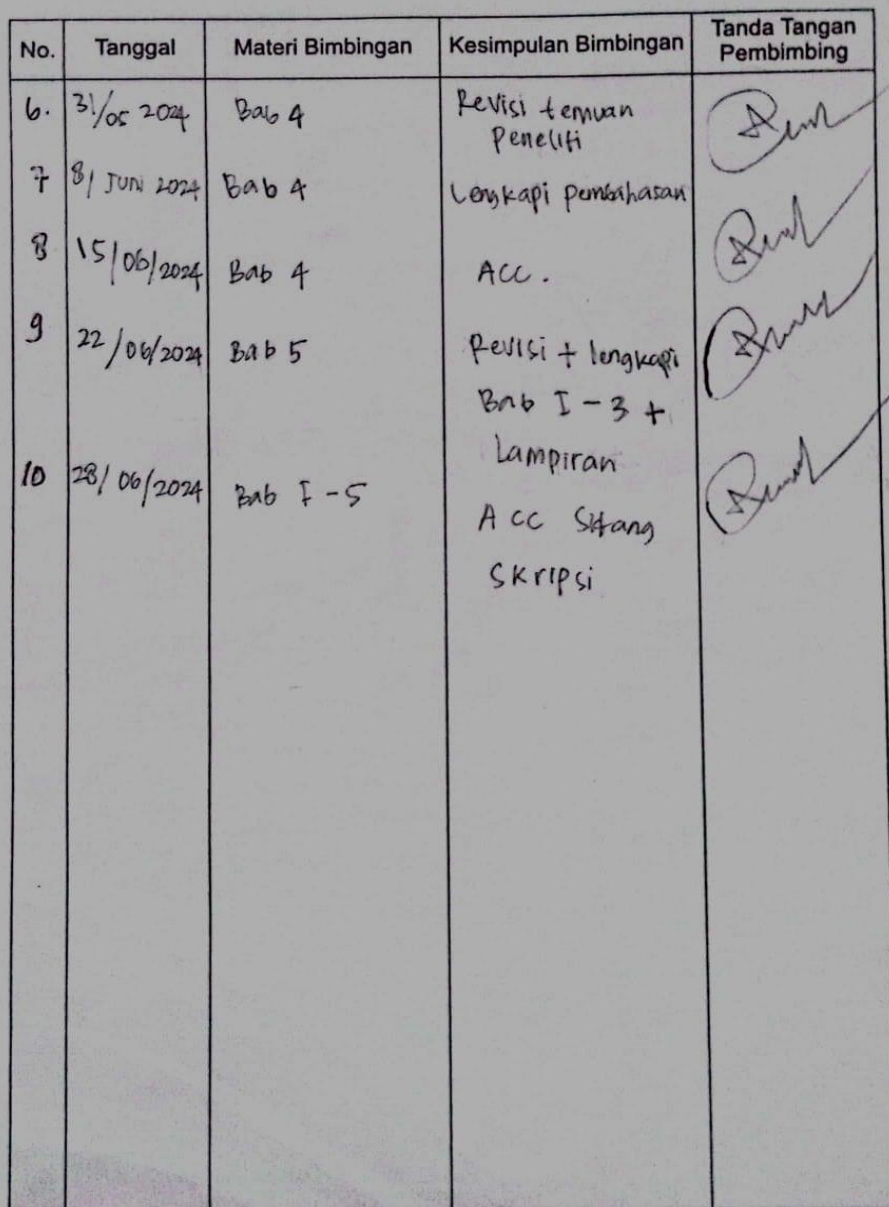 No. Tanggal Materi Bimbingan Kesimpulan Bimbingan Tanda Tangan Pembimbing
6. 31/05 2024 Bab 4 Revisi temuan
Peneliti
7 8/ JUN 2024 Bab 4 Lengkapi pembahasan
8 15/06/2024 Bab 4 ACC.
9 22/06/2024 Bab 5 Revisi + lengkapi
Bab I - 3 +
Lampiran
10 28/06/2024 Bab I - 5
ACC Sidang
Skripsi